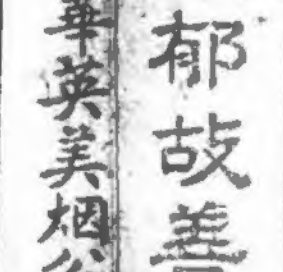 郁故善
華英美烟公